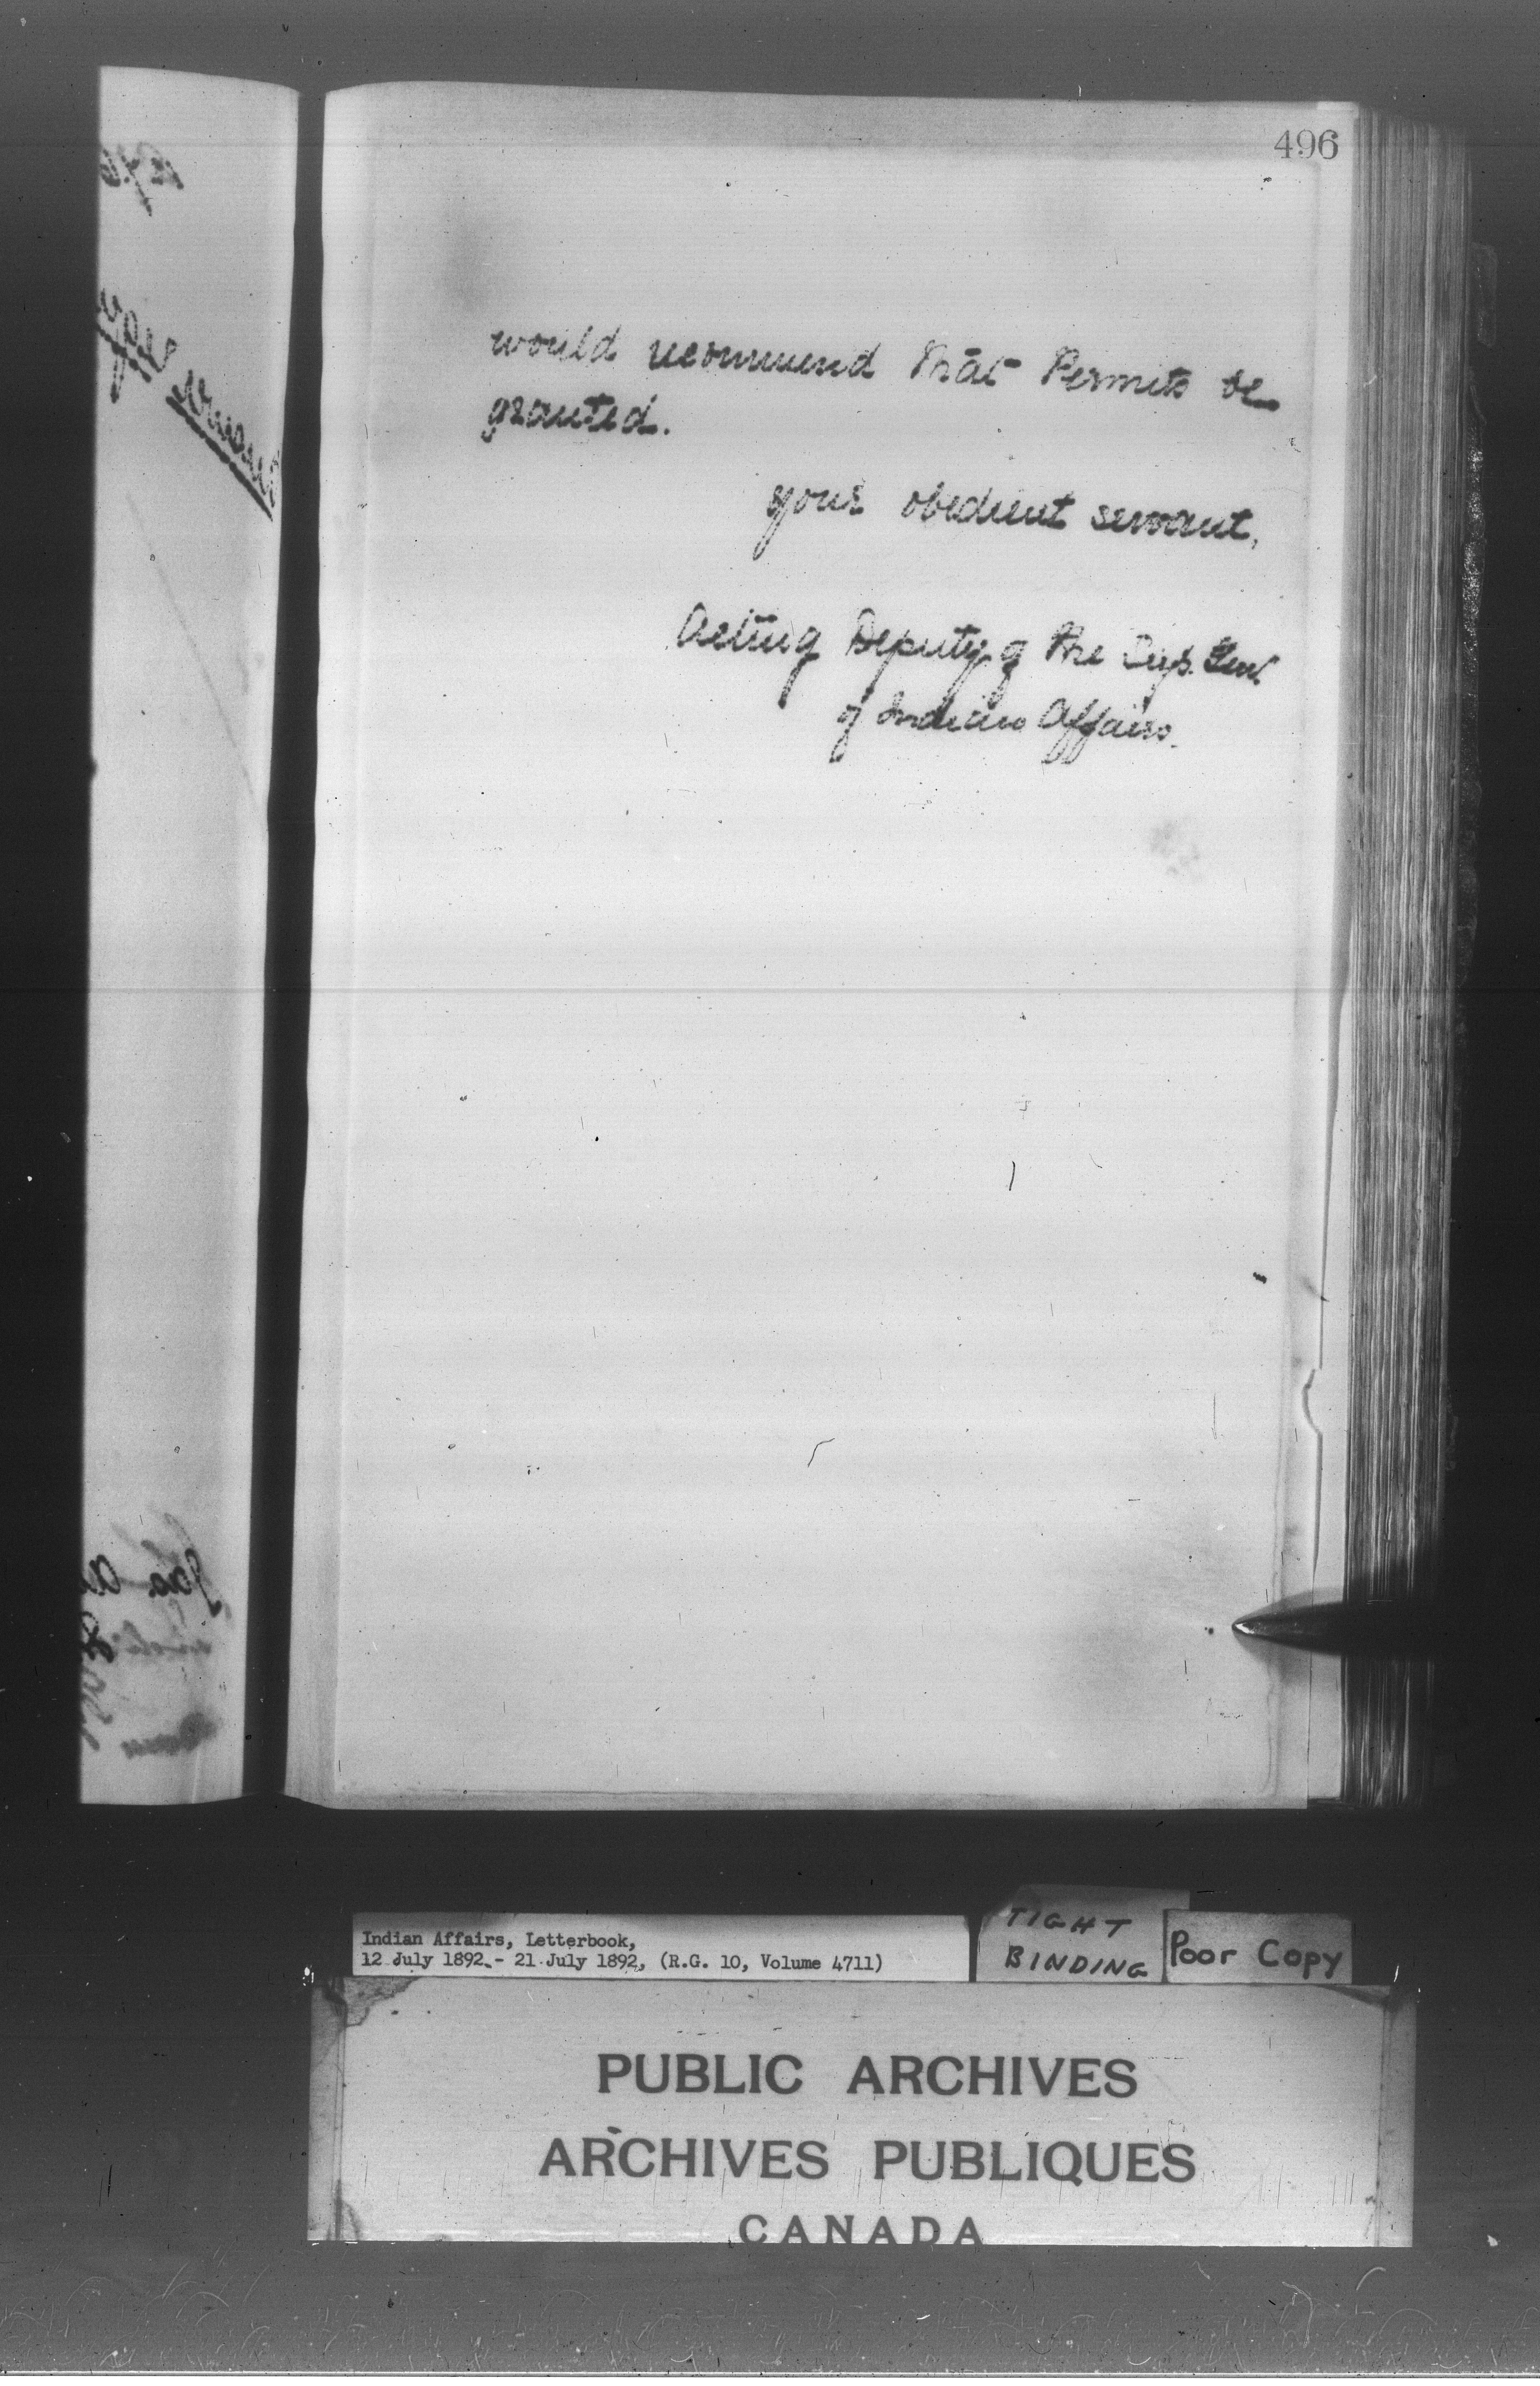 496
would recommend that Permits be
granted.
your obedient servant,
Acting Deputy of the Sup. Genl.
of Indian Affairs.
Indian Affairs, Letterbook,
12 July 1892 - 21 July 1892, (R.G. 10, Volume 4711)
TIGHT
BINDING
Poor Copy
PUBLIC ARCHIVES
ARCHIVES PUBLIQUES
CANADA